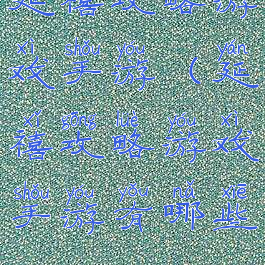 延禧攻略游
xì shǒu yóu yán
戏手游（延
xǐ gōng lüè yóu xì
禧攻略游戏
shǒu yóu yǒu nǎ xiē
手游有哪些